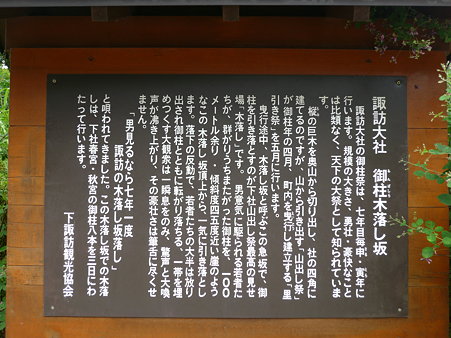 諏訪大社　御柱木落し坂
諏訪大社の御柱祭は、七年目毎申・寅年に
行います。規模の大きさ、勇壮・豪快なこと
は比類なく、天下の大祭として知られていま
す。
樅の巨木を奥山から切り出し、社の四角に
建てるのですが、山から引き出す「山出し祭」
が御柱年の四月、町内を曳行し建立する「里
引き祭」を五月に行います。
曳行途中、木落し坂と呼ぶこの急坂で、御
柱を引き落とすのが下社山出し祭最高の見せ
場「木落し」です。男意気に駆られる若者た
ちが、群がりうちまたがった御柱を、一〇〇
メートル余り・傾斜度四五度近い崖のよう
なこの木落し坂頂上から、一気に引き落とし
ます。落下の反動で、若者たちの大半は放り
出され御柱とともに転がり落ちる。一帯を埋
めつくす大観衆は一瞬息をのみ、驚異と大喚
声が沸き上がり、その豪壮さは筆舌に尽くせ
ません。
「男見るなら七年一度
諏訪の木落し坂落し」
と唄われてきました。この木落し坂での木落
しは、下社春宮・秋宮の御柱八本を三日にわ
たって行います。
下諏訪観光協会